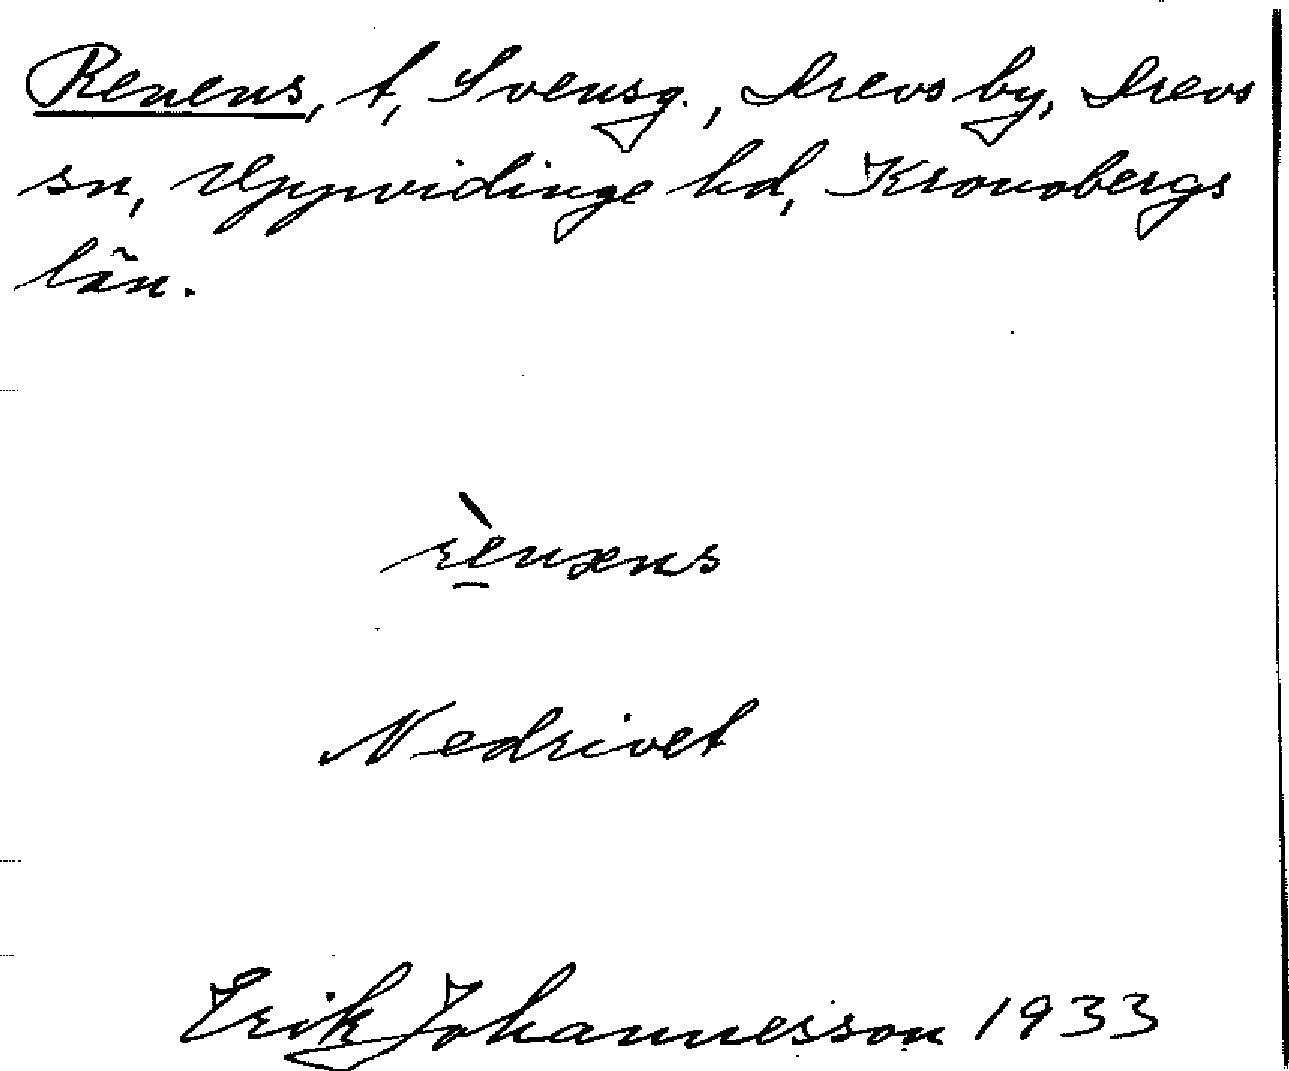 Renens, t, Svensg., Drevs by, Drevs
sn, Uppvidinge hd, Kronobergs
län.
rènəns
Nedrivet
Erik Johannesson 1933